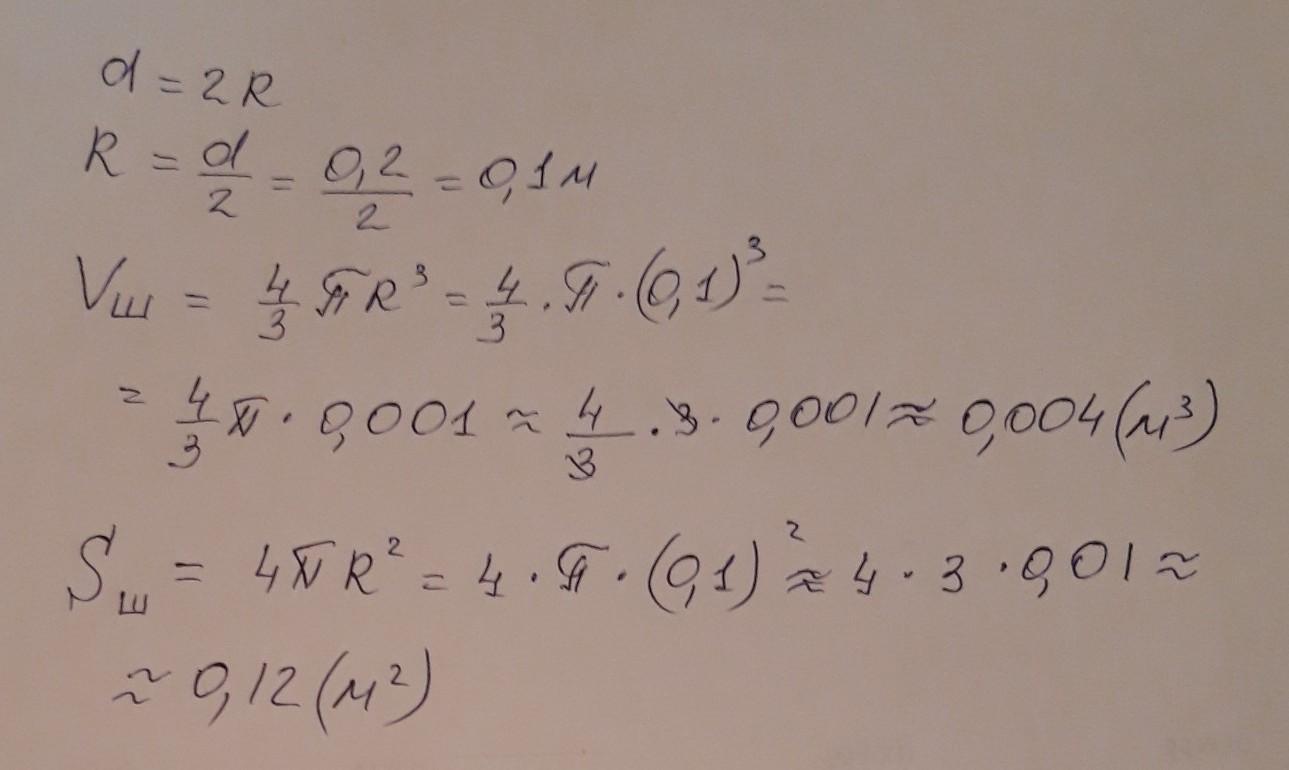 d = 2R
R = d/2 = 0,2/2 = 0,1 м
Vш = 4/3 πR³ = 4/3 · π · (0,1)³ =
= 4/3 π · 0,001 ≈ 4/3 · 3 · 0,001 ≈ 0,004 (м³)
Sш = 4πR² = 4 · π · (0,1)² ≈ 4 · 3 · 0,01 ≈
≈ 0,12 (м²)